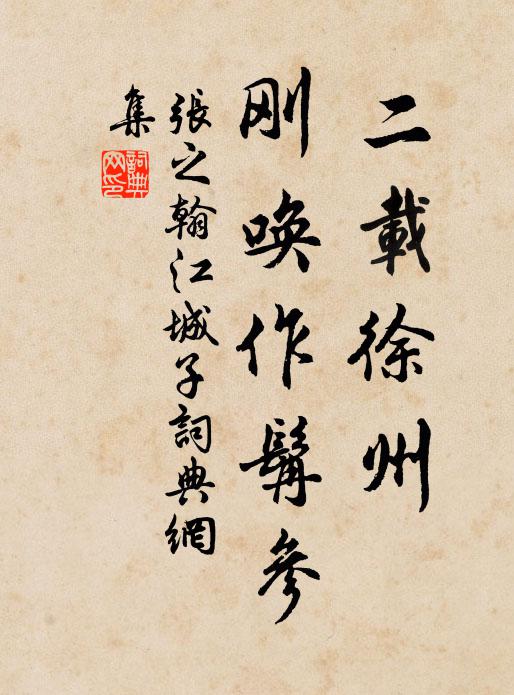 二載徐州
刚唤作髯參
張之翰江城子詞典網
集
詞典
网印